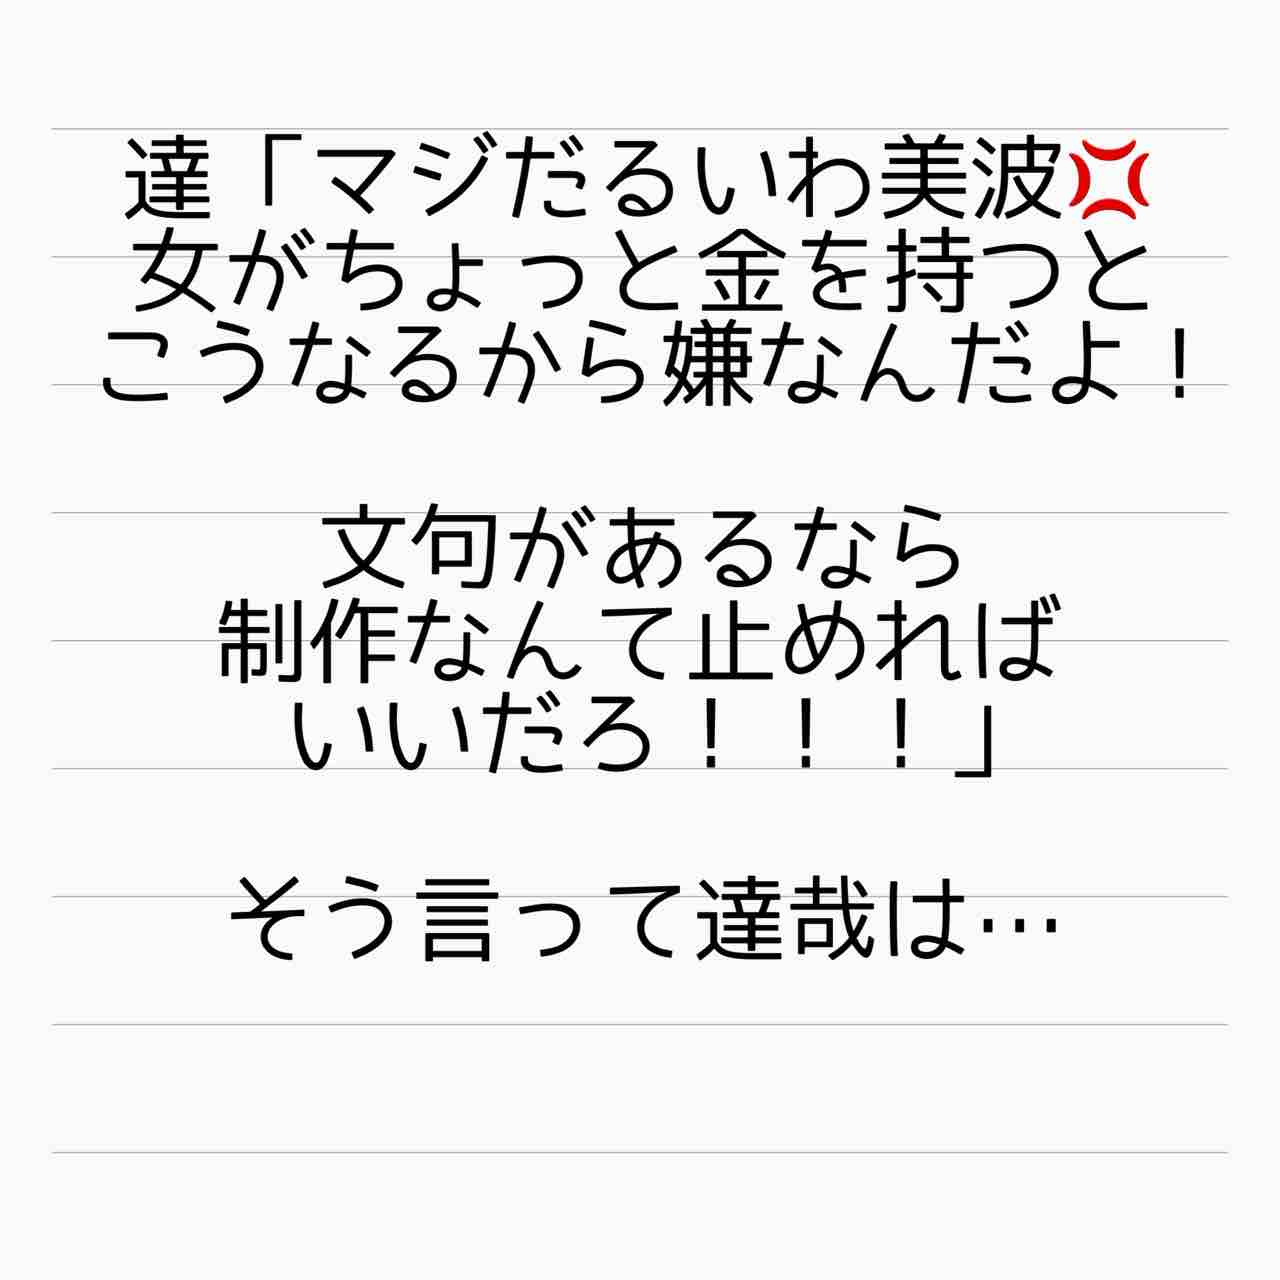 達「マジだるいわ美波💢
女がちょっと金を持つと
こうなるから嫌なんだよ！
文句があるなら
制作なんて止めれば
いいだろ！！！」
そう言って達哉は…